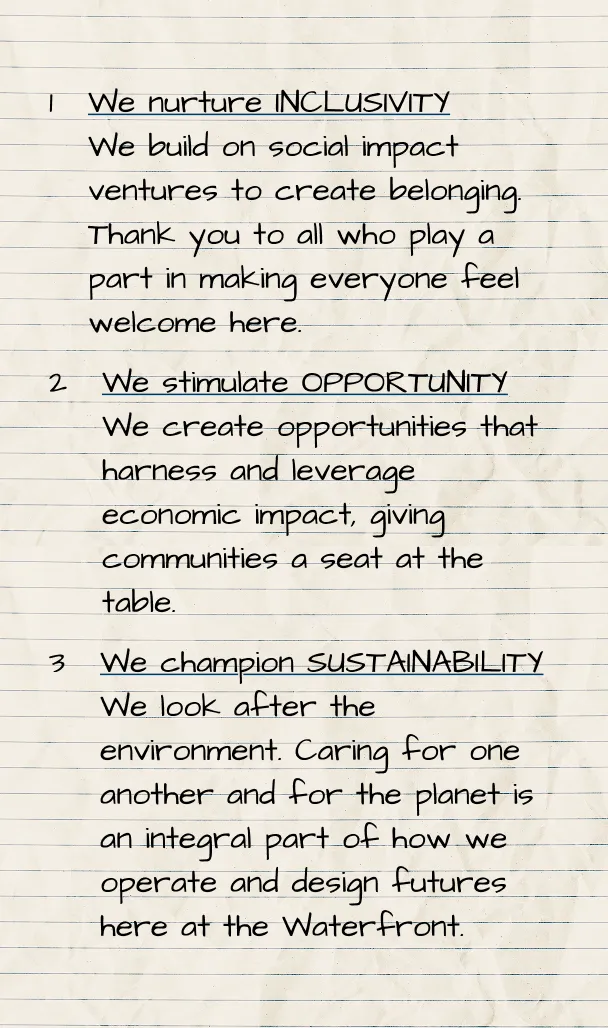 1 We nurture INCLUSIVITY
We build on social impact
ventures to create belonging.
Thank you to all who play a
part in making everyone feel
welcome here.
2 We stimulate OPPORTUNITY
We create opportunities that
harness and leverage
economic impact, giving
communities a seat at the
table.
3 We champion SUSTAINABILITY
We look after the
environment. Caring for one
another and for the planet is
an integral part of how we
operate and design futures
here at the Waterfront.